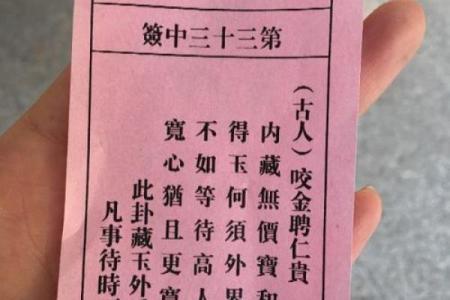 第三十三中簽
(古人)咬金聘仁貴
內藏無價寶和
得玉何須外界
不如等待高人
寬心猶且更寬
此卦藏玉外
凡事待時